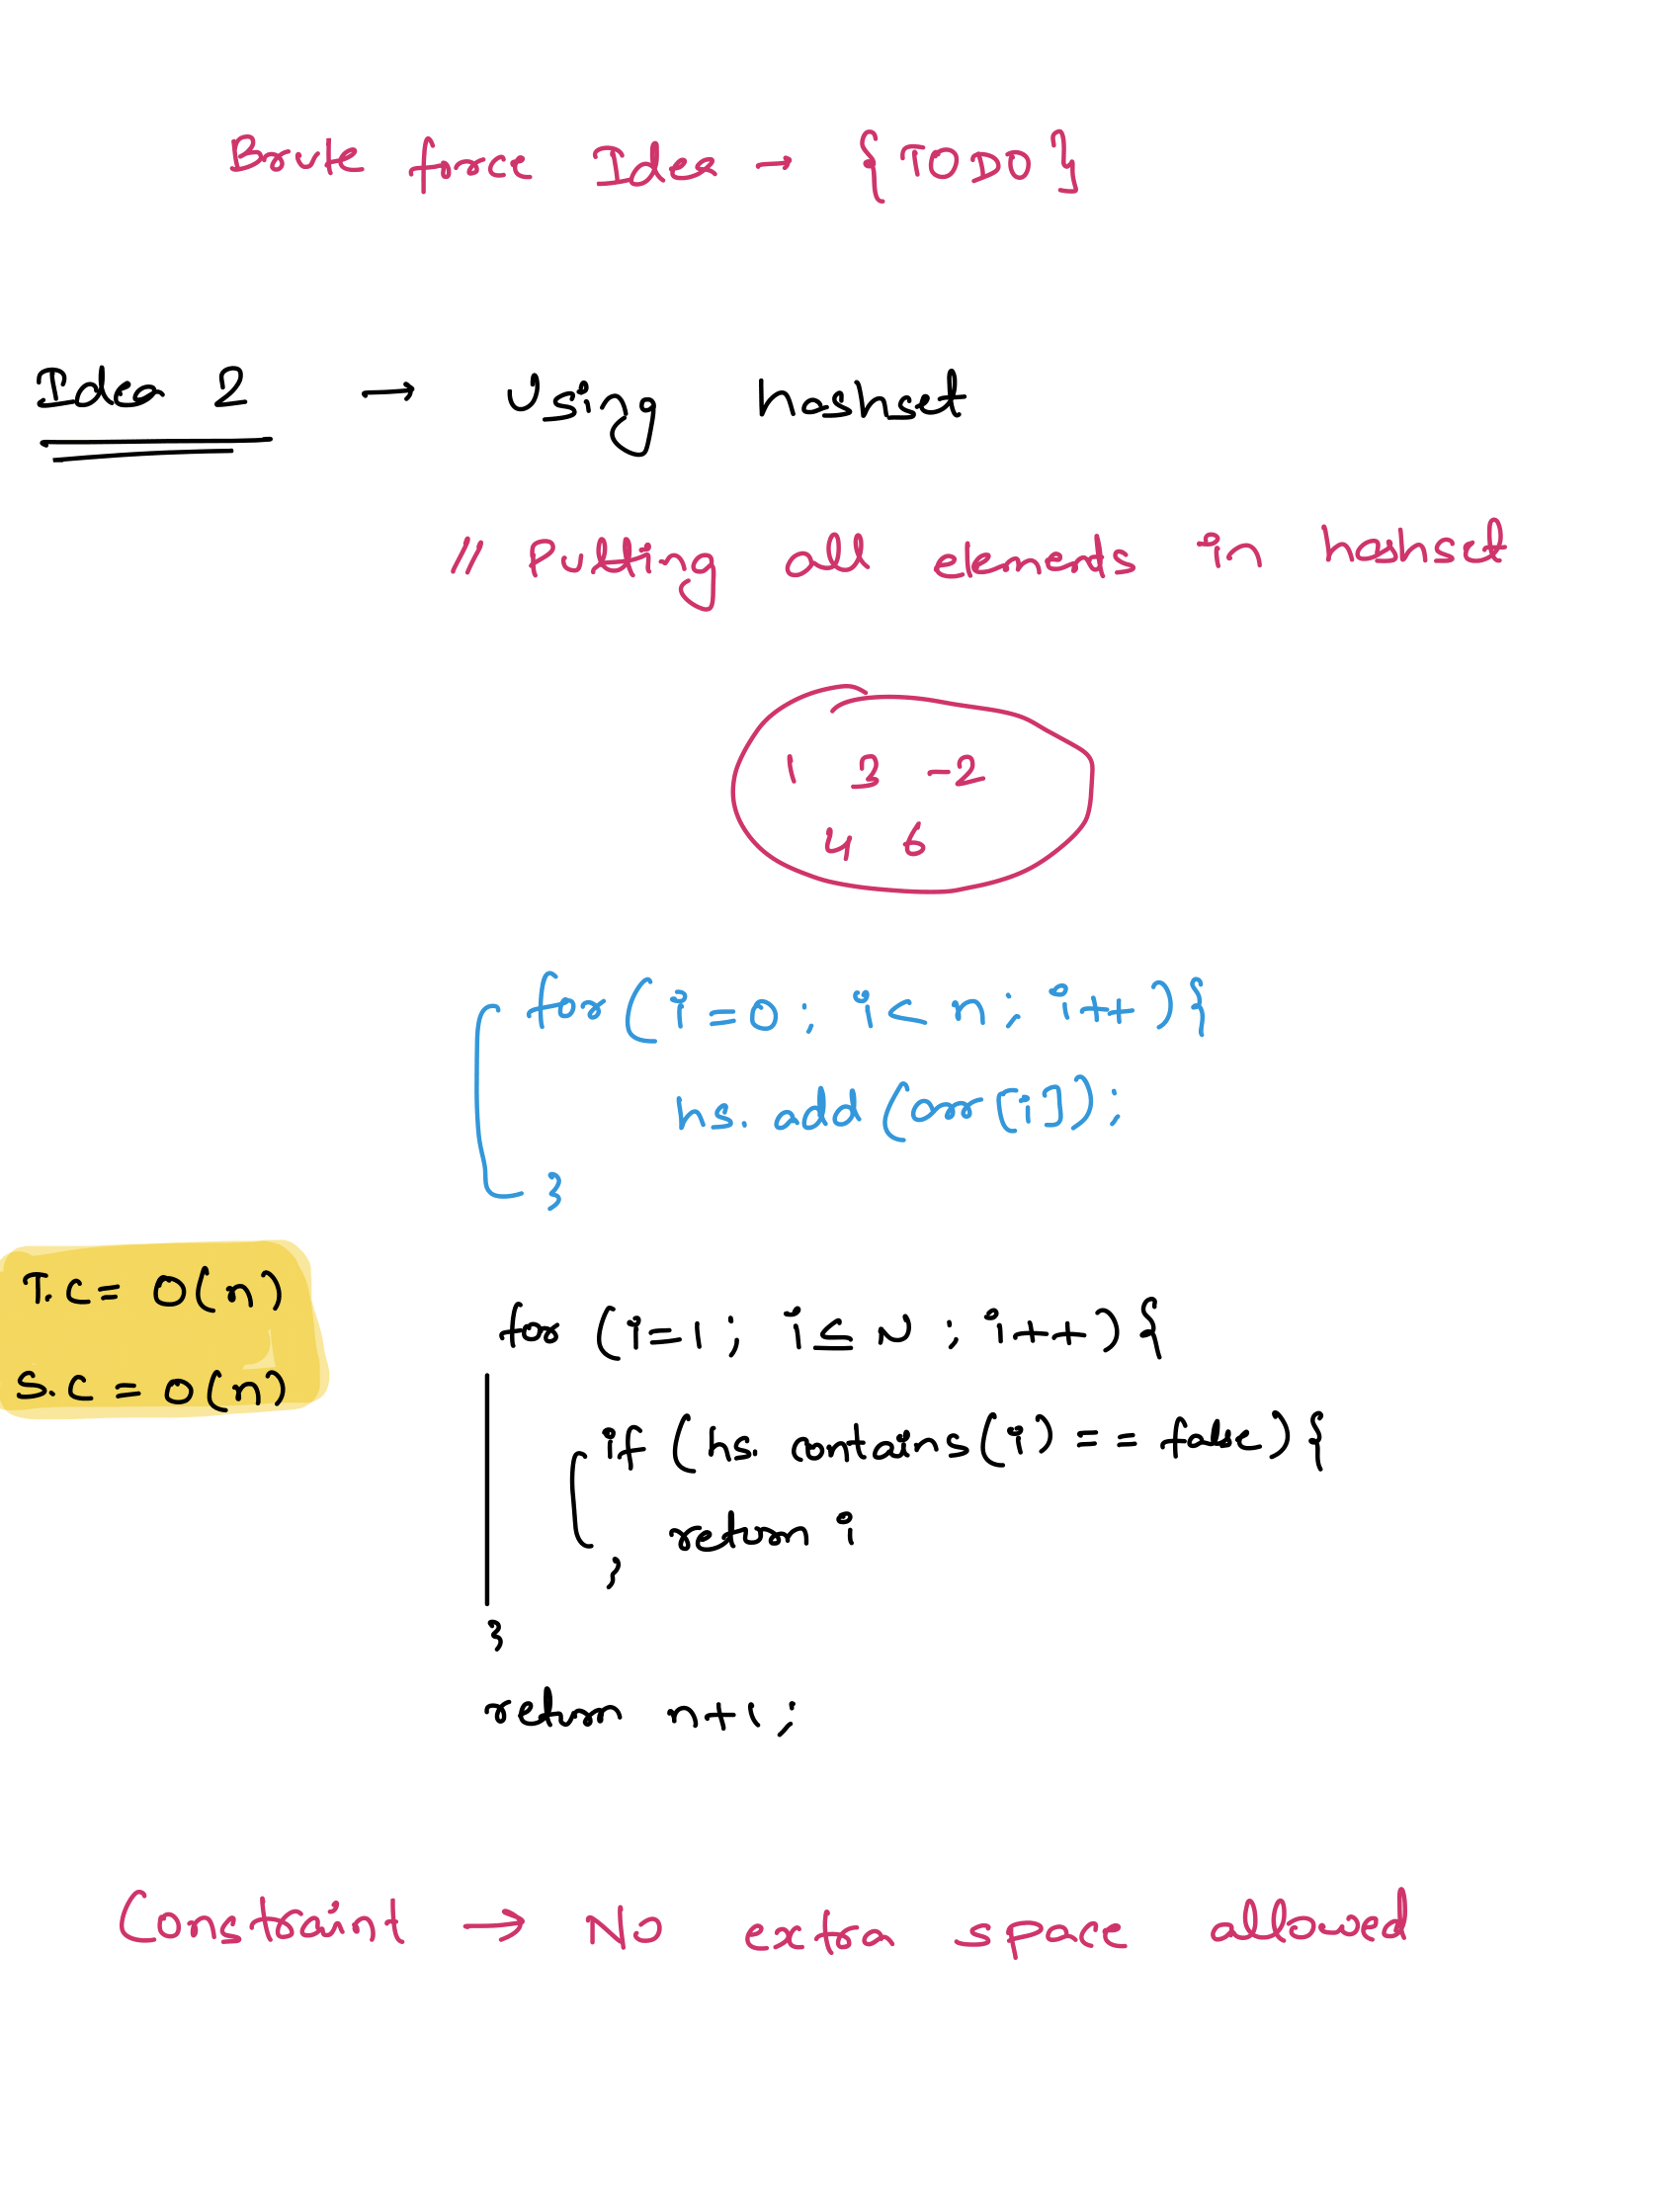 Brute force Idea → {TODO}
Idea 2 → Using hashset
// Putting all elements in hashset
1 3 -2
4 6
for(i=0; i<n; i++){
hs.add(arr[i]);
}
T.C= O(n)
S.C = O(n)
for (i=1; i≤N; i++){
if (hs.contains(i) == false){
return i
}
}
return n+1;
Constraint → No extra space allowed